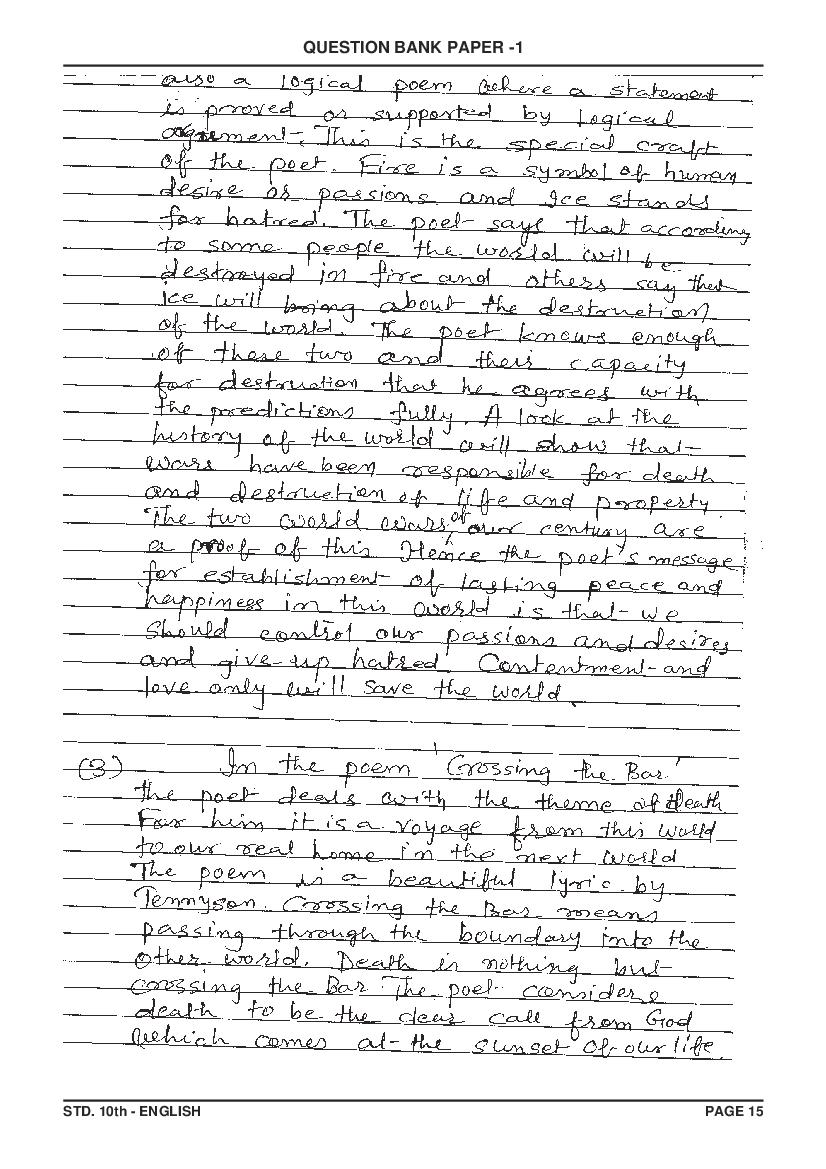 QUESTION BANK PAPER -1
also a logical poem where a statement
is proved or supported by logical
agreement. This is the special craft
of the poet. Fire is a symbol of human
desire or passions and Ice stands
for hatred. The poet says that according
to some people the world will be
destroyed in fire and others say that
ice will bring about the destruction
of the world. The poet knows enough
of these two and their capacity
for destruction that he agrees with
the predictions fully. A look at the
history of the world will show that
wars have been responsible for death
and destruction of life and property
The two world wars of our century are
a proof of this Hence the poet's message
for establishment of lasting peace and
happiness in this world is that we
should control our passions and desires
and give-up hatred. Contentment and
love only will save the world
(3) In the poem 'Crossing the Bar'
the poet deals with the theme of death
For him it is a voyage from this world
to our real home in the next world
The poem is a beautiful lyric by
Tennyson. Crossing the Bar means
passing through the boundary into the
other world. Death is nothing but
crossing the Bar The poet considers
death to be the clear call from God
which comes at the sunset of our life.
STD. 10th - ENGLISH
PAGE 15